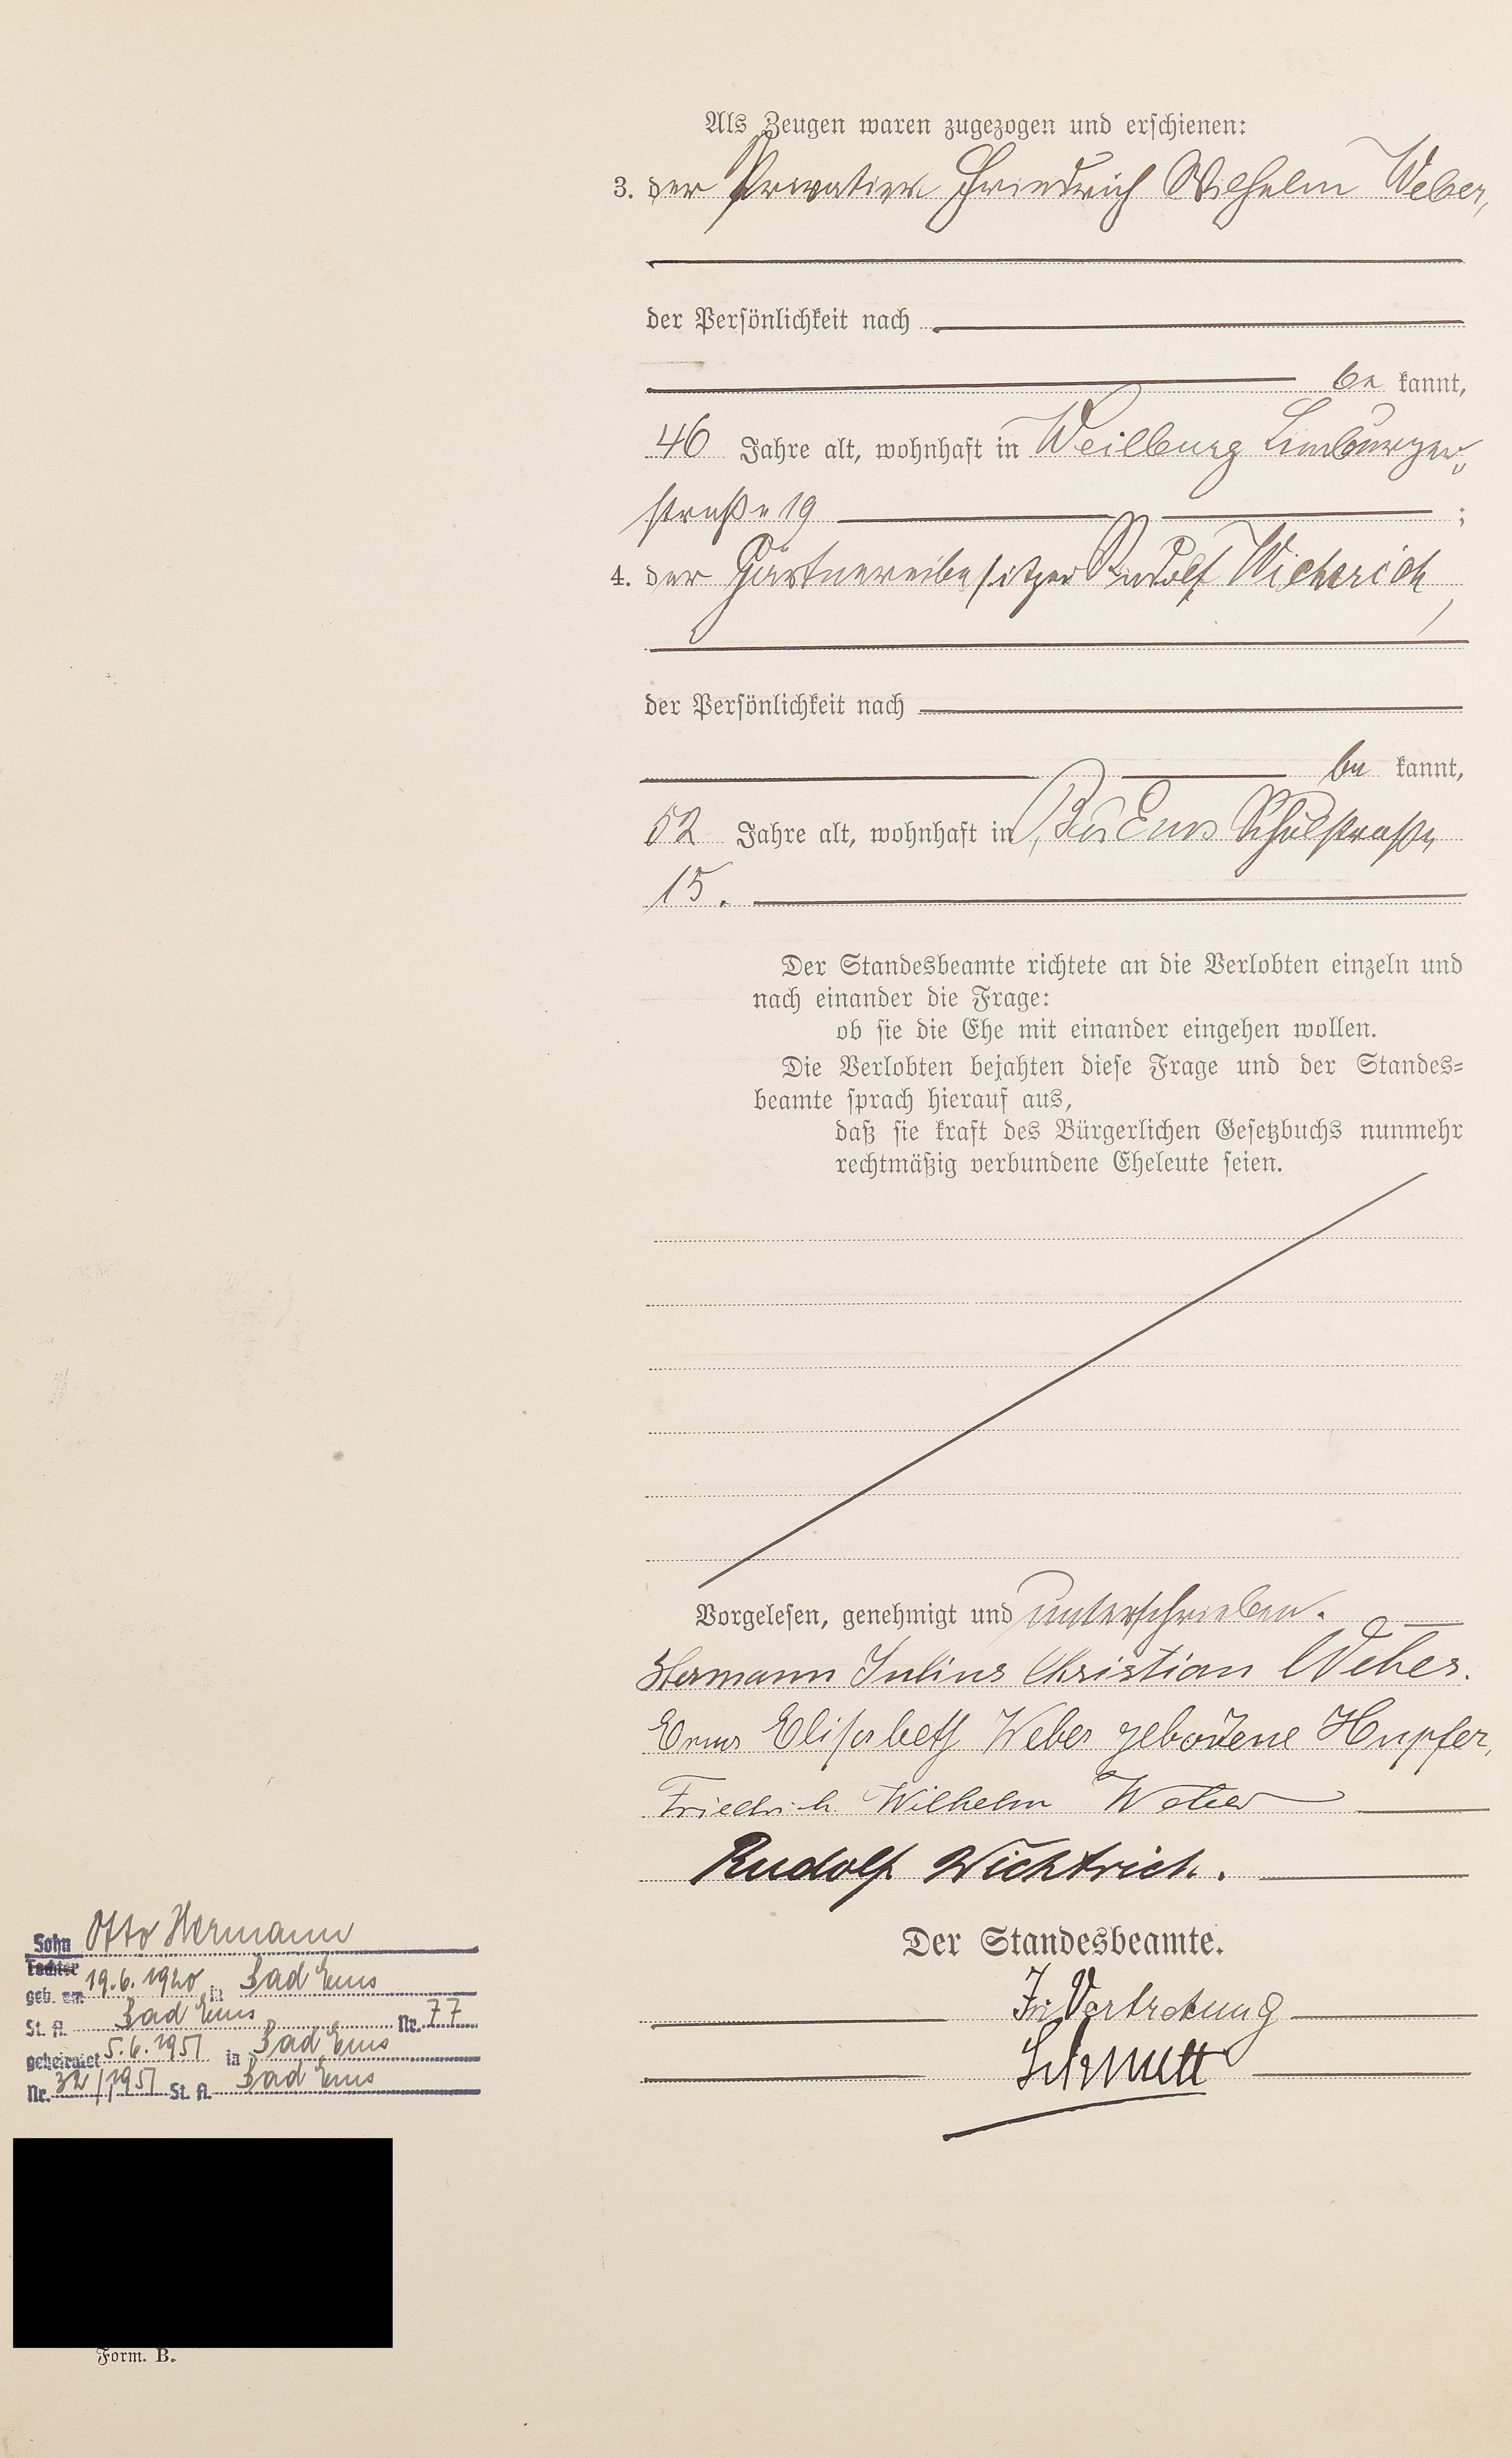 Als Zeugen waren zugezogen und erschienen:
3. der Privatier Friedrich Wilhelm Weber,
der Persönlichkeit nach
be kannt,
46 Jahre alt, wohnhaft in Weilburg Limburger-
straße 19 ;
4. der Gärtnereibesitzer Rudolf Wichtrich,
der Persönlichkeit nach
be kannt,
52 Jahre alt, wohnhaft in Bad Ems Schulstraße
15.
Der Standesbeamte richtete an die Verlobten einzeln und
nach einander die Frage:
ob sie die Ehe mit einander eingehen wollen.
Die Verlobten bejahten diese Frage und der Standes-
beamte sprach hierauf aus,
daß sie kraft des Bürgerlichen Gesetzbuchs nunmehr
rechtmäßig verbundene Eheleute seien.
Vorgelesen, genehmigt und unterschrieben.
Hermann Julius Christian Weber.
Erna Elisabeth Weber geborene Hupfer,
Friedrich Wilhelm Weber
Rudolf Wichtrich.
Der Standesbeamte.
In Vertretung
Schmitt
Sohn Otto Hermann
Tochter
geb. am 19.6.1920 in Bad Ems
St. A. Bad Ems Nr. 77
geheiratet 5.6.1951 in Bad Ems
Nr. 32/1951 St. A. Bad Ems
Form. B.